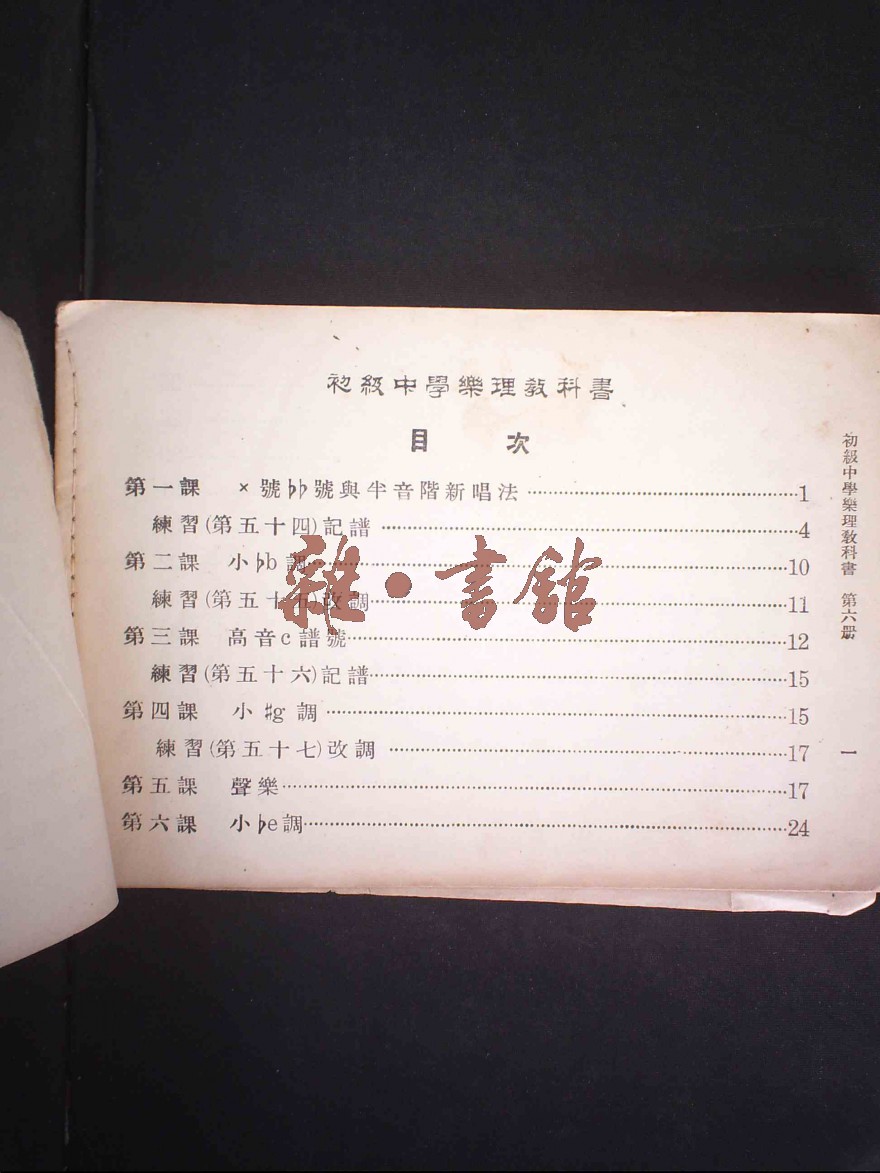 初級中學樂理教科書
目 次
第一課 ×號♭♭號與半音階新唱法 1
練習(第五十四)記譜 4
第二課 小♭b調 10
練習(第五十五)改調 11
第三課 高音c譜號 12
練習(第五十六)記譜 15
第四課 小♯g調 15
練習(第五十七)改調 17
第五課 聲樂 17
第六課 小♭e調 24
初級中學樂理教科書 第六册 一
雜·書館